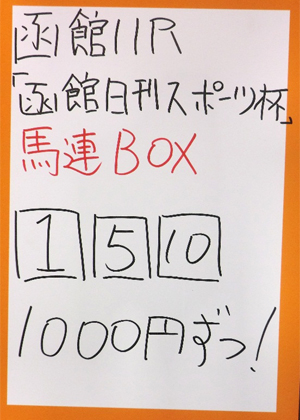 函館11R
「函館日刊スポーツ杯」
馬連BOX
1 5 10
1000円ずつ!